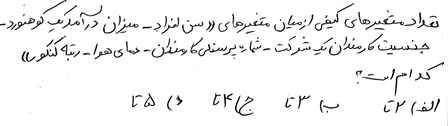 تعداد متغیرهای کیفی از میان متغیرهای «سن افراد - میزان درآمد یک کوهنورد -
جنسیت کارمندان یک شرکت - شماره پرسنلی کارمندان - دمای هوا - رتبه کنکور»
کدام است؟
الف) ۲ تا ب) ۳ تا ج) ۴ تا د) ۵ تا